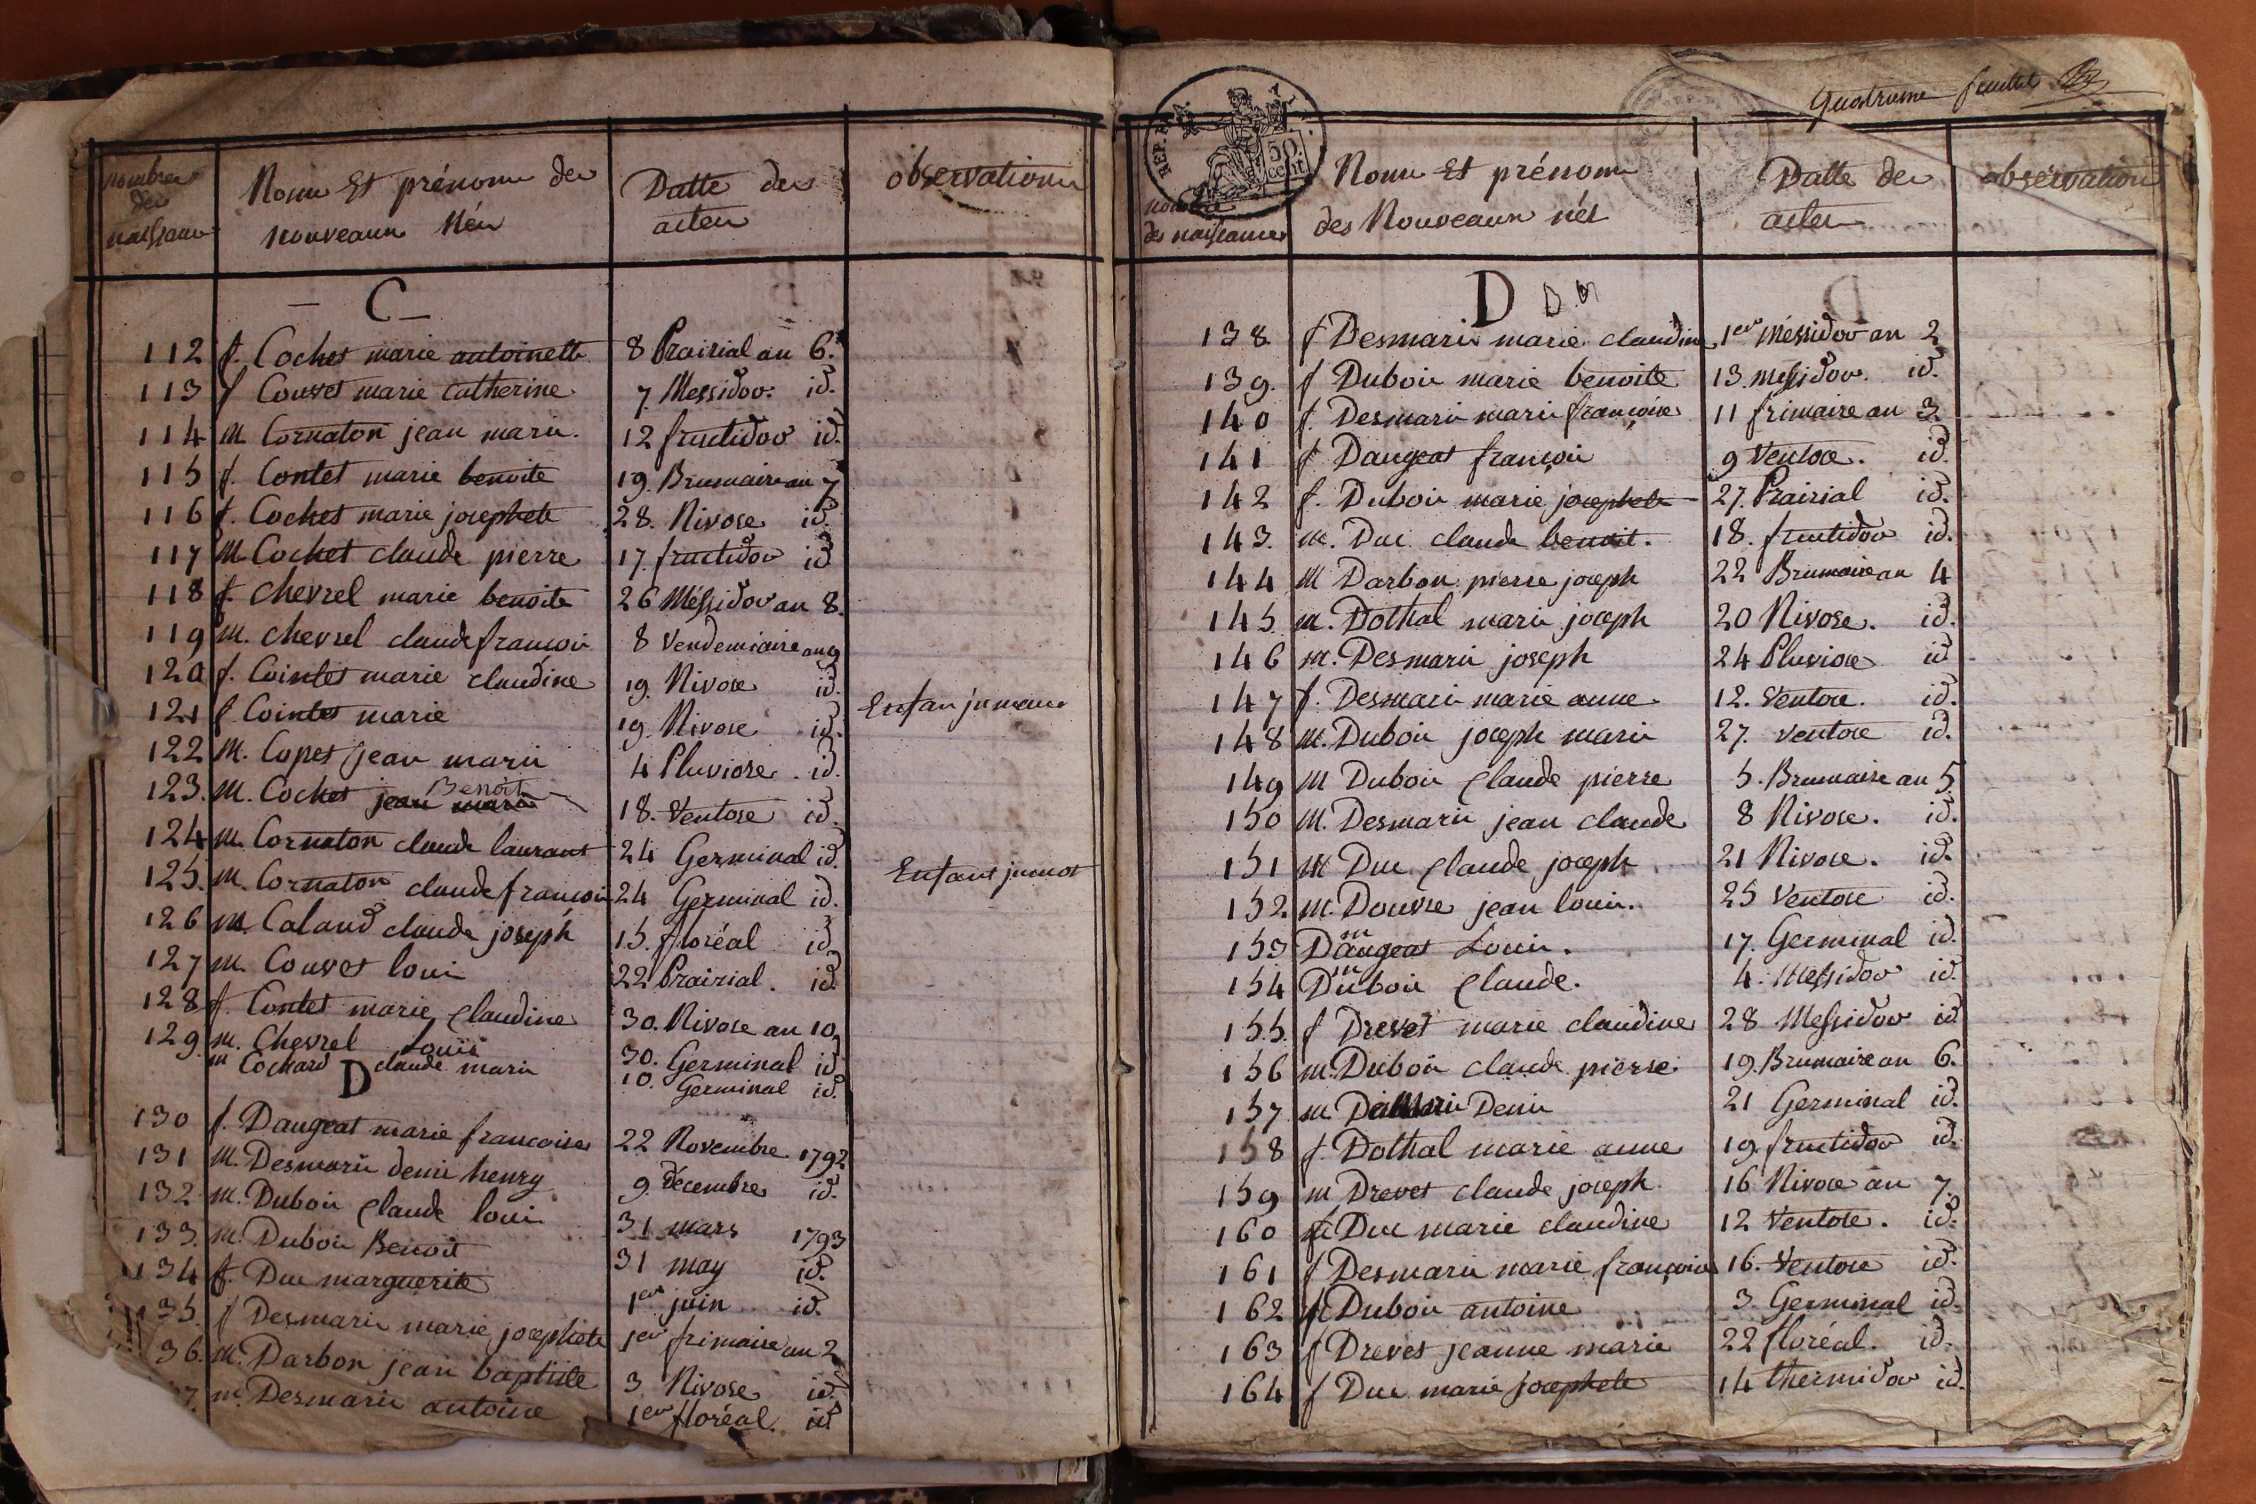 nombres des naissances
Noms Et prénoms des nouveaux Nés
Datte des actes
observations
C
112 f. Cochet marie antoinette 8 Prairial an 6.
113 f Couvet marie Catherine 7. Messidor. id.
114 m Cornaton jean marie. 12 fructidor id.
115 f. Contet marie benoite 19. Brumaire an 7
116 f. Cochet marie josephete 28. Nivose id.
117 m Cochet claude pierre 17. fructidor id
118 f. Chevrel marie benoite 26 Méssidor an 8.
119 m. Chevrel claude francois 8 Vendemiaire an 9
120 f. Cointet marie claudine 19. Nivose id.
121 f. Cointet marie 19. Nivose id. Enfan jumeaux
122 m. Copet jean marie 4 Pluviose. id.
123. m. Cochet jean marie Benoit 18. Ventose id.
124 m. Cornaton claude laurant 24 Germinal id.
125. m. Cornaton claude francois 24 Germinal id. Enfant jumot
126 m. Caland claude joseph 15. floréal id
127 m. Couvet louis 22 Prairial. id.
128 f. Contet marie Claudine 30. Nivose an 10
129. m. Chevrel Louis 30. Germinal id
m Cochard claude marie 10. Germinal id.
D
130 f. Daugeat marie francoise 22 Novembre 1792
131 m. Desmaris denis henry 9. décembre id.
132 m. Dubois Claude louis 31 mars 1793
133. m. Dubois Benoit 31 may id.
134 f. Duc marguerite 1er juin id.
35. f Desmaris marie josephete 1er frimaire an 2
36. m. Darbon jean baptiste 3 Nivose id.
7. m. Desmaris antoine 1er floréal. id
Quatrieme feuillet
REP. FRA.
50. cent
nombre des naissances
Noms Et prénoms des Nouveaux nés
Datte des actes
observation
D D
138. f Desmaris marie claudine 1er Méssidor an 2
139. f Dubois marie benoite 13. messidor. id.
140 f. Desmaris marie françoise 11 frimaire an 3
141 f Daugeat françois 9 Ventose. id
142 f. Dubois marie josephete 27. Prairial id.
143. m. Duc claude benoit. 18. fructidor id.
144 m Darbon pierre joseph 22 Brumaire an 4
145 m. Dothal marie joseph 20 Nivose. id.
146 m. Desmaris joseph 24 Pluviose id
147 f. Desmaris marie anne 12. Ventose. id.
148 m. Dubois joseph marie 27. ventose id.
149 m Dubois Claude pierre 5. Brumaire an 5.
150 m. Desmaris jean claude 8 Nivose. id.
151 m Duc Claude joseph 21 Nivose. id.
152. m. Douvre jean louis. 25 Ventose id.
153 m Daugeat Louis. 17. Germinal id.
154 m Dubois Claude. 4. Messidor id.
155. f Drevet marie claudine 28 Messidor id
156 m. Dubois claude pierre 19. Brumaire an 6.
157 m. Denis 21 Germinal id.
158 f. Dothal marie anne 19. fructidor id.
159 m Drevet claude joseph 16 Nivose an 7.
160 f Duc marie claudine 12 Ventose. id.
161 f Desmaris marie françoise 16. Ventose id.
162 m Dubois antoine 3. Germinal id.
163 f Drevet jeanne marie 22 floréal. id.
164 f Duc marie josephete 14 thermidor id.